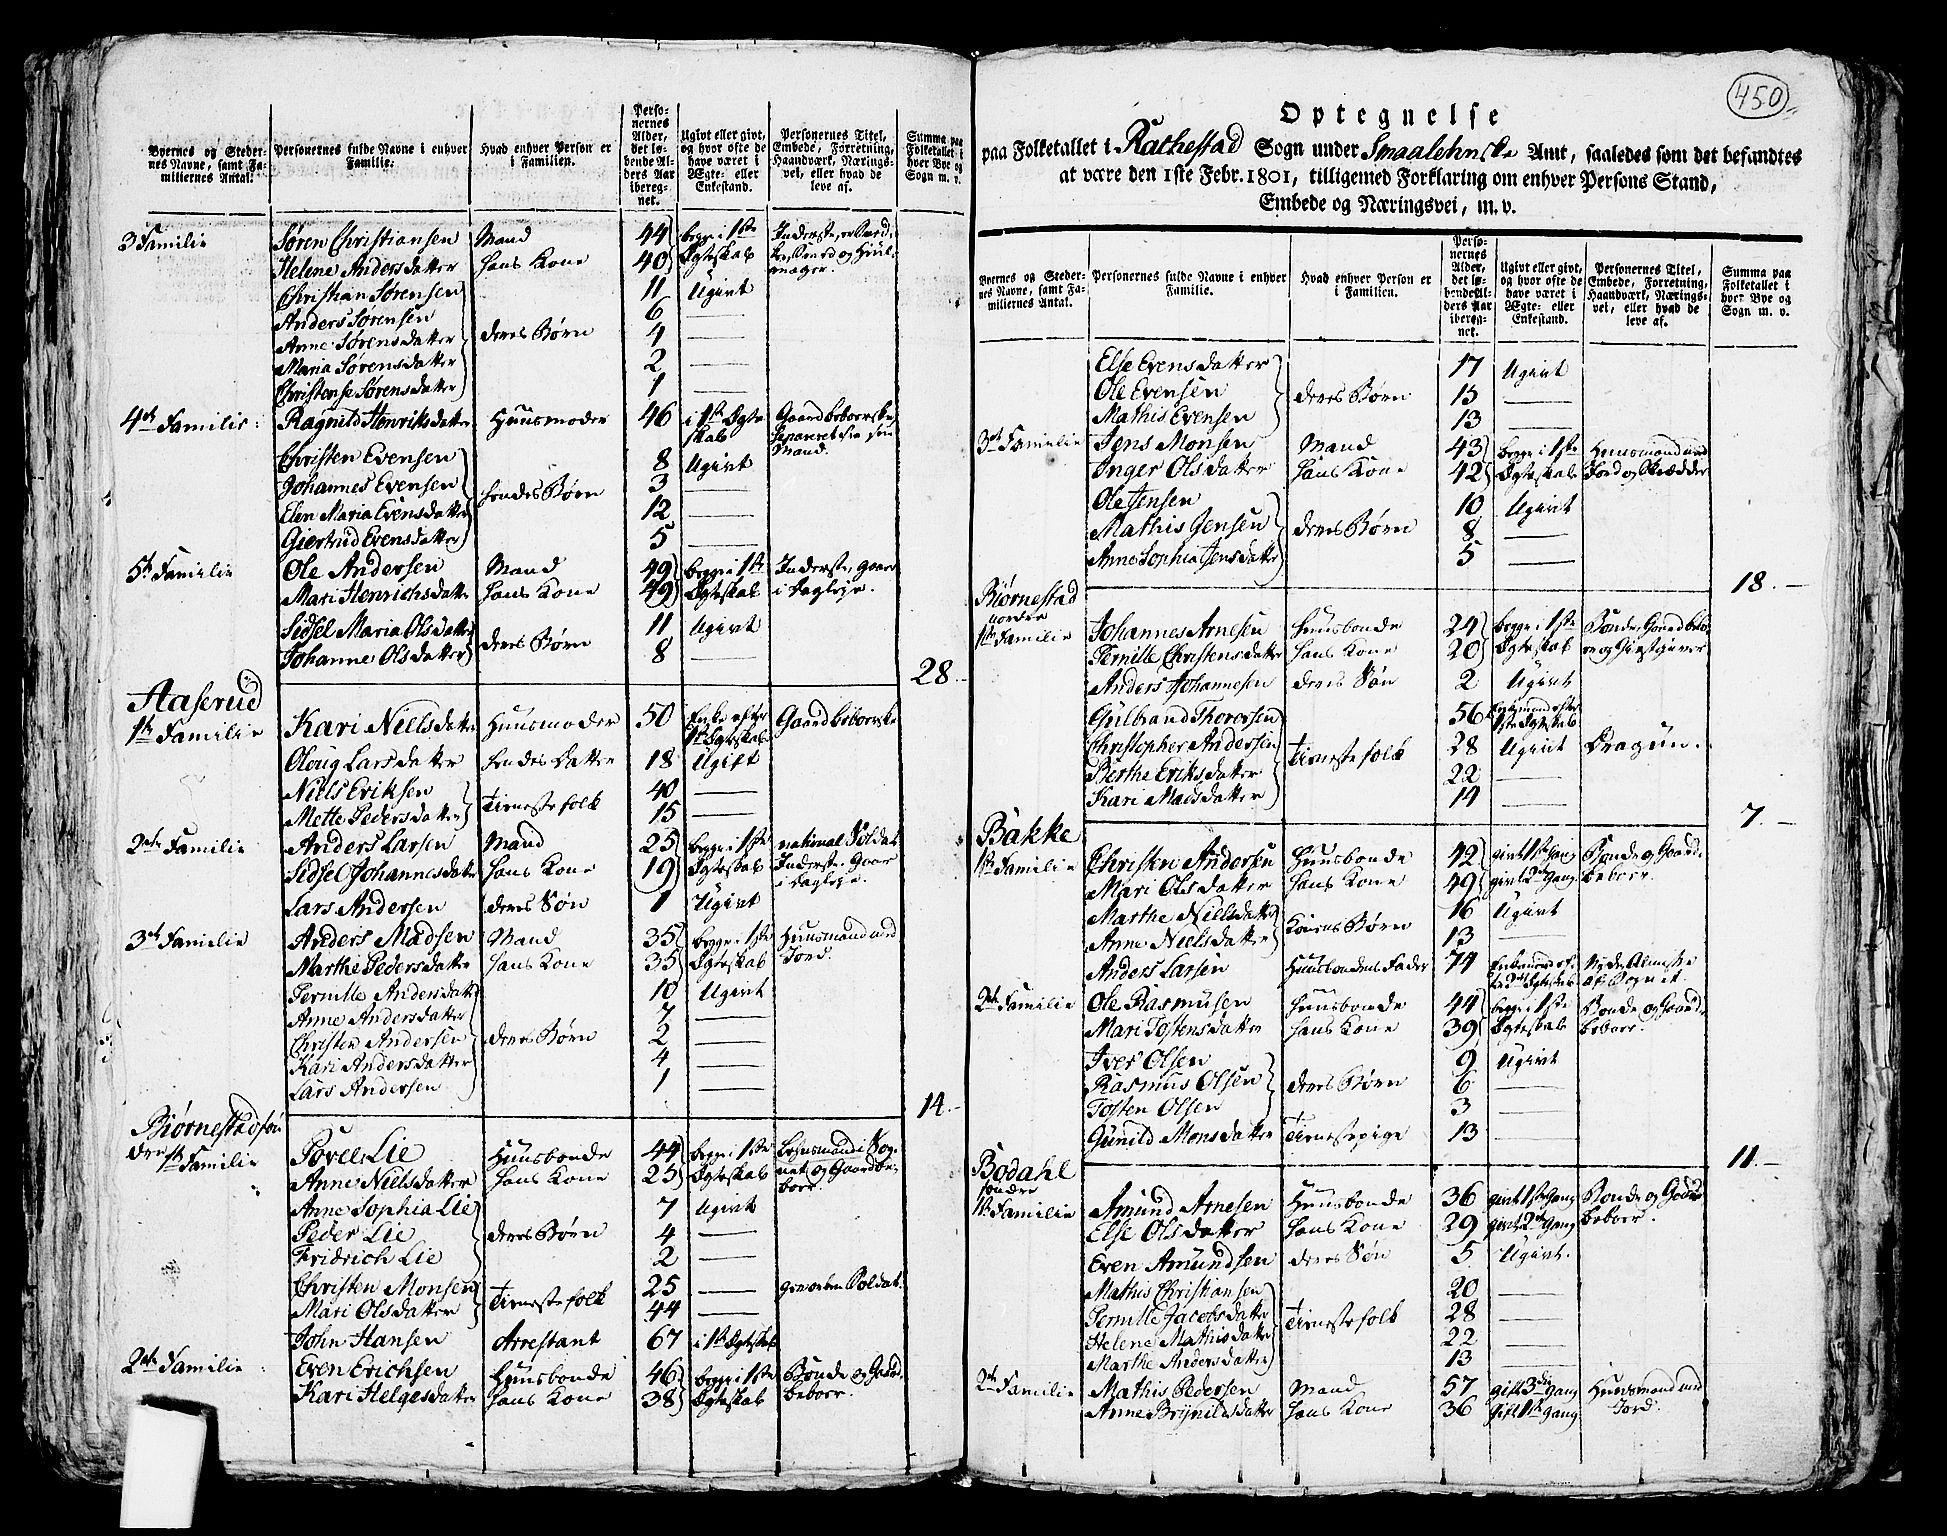 Byernes og Stedernes Navne, samt Familiernes Antal.
Personernes fulde Navne i enhver Familie.
Hvad enhver Person er i Familien.
Personernes Alder, det løbende Alders Aar iberegnet.
Ugivt eller givt, og hvor ofte de have været i Ægte- eller Enkestand.
Personernes Titel, Embede, Forretning, Haandværk, Næringsvei, eller hvad de leve af.
Summa paa Folketallet i hver Bye og Sogn m. v.
3 Familie Søren Christiansen Mand 44 begge i 1ste
Helene Andersdatter hans Kone 40 Ægteskab
Christian Sørensen 11 Ugivt
Anders Sørensen 6
Anne Sørensdatter deres Børn 4
Maria Sørensdatter 2
Christense Sørensdatter 1
4de Familie Ragnild Henriksdatter Huusmoder 46 i 1ste Ægteskab Gaardbeboerske
Mand.
Christen Evensen 8 Ugivt
Johannes Evensen hendes Børn 3
Elen Maria Evensdatter 12
Giertrud Evensdatter 5
5te Familie Ole Andersen Mand 49 begge i 1ste Inderste, gaar
Mari Henrichsdatter hans Kone 49 Ægteskab i Dagleje.
Sidsel Maria Olsdatter deres Børn 11 Ugivt
Johanne Olsdatter 8
28
Aaserud
1ste Familie Kari Nielsdatter Huusmoder 50 Enke efter 1ste Ægteskab Gaardbeboerske
Oloug Larsdatter hendes Datter 18 Ugift
Niels Eriksen Tieneste folk 40
Mette Pedersdatter 15
2den Familie Anders Larsen Mand 25 begge i 1ste national Soldat
Sidsel Johannesdatter hans Kone 19 Ægteskab Inderste, Gaar i Dagleje.
Lars Andersen deres Søn 1 Ugivt
3de Familie Anders Madsen Mand 35 begge i 1ste Huusmand med
Marthe Pedersdatter hans Kone 35 Ægteskab Jord.
Pernille Andersdatter 10 Ugivt
Anne Andersdatter 7
Christen Andersen deres Børn 2
Kari Andersdatter 4
Lars Andersen 1
14
Biørnestad søndre
1ste Familie Povel Lie Huusbonde 44 begge i 1ste Lehnsmand i Sognet og Gaardbeboer
Anne Nielsdatter hans Kone 25 Ægteskab
Anne Sophia Lie 7 Ugivt
Peder Lie deres Børn 4
Fridrich Lie 2
Christen Monsen Tieneste folk 25 geworben Soldat.
Mari Olsdatter 44
John Hansen Arrestant 67 i 1ste Ægteskab
2den Familie Even Erichsen Huusbonde 46 begge i 1ste Bonde og Gaard
Kari Helgesdatter hans Kone 38 Ægteskab beboer.
450
Optegnelse
paa Folketallet i Rakkestad Sogn under Smaalehnske Amt, saaledes som det befandtes
at være den 1ste Febr. 1801, tilligemed Forklaring om enhver Persons Stand,
Embede og Næringsvei, m. v.
Byernes og Stedernes Navne, samt Familiernes Antal.
Personernes fulde Navne i enhver Familie.
Hvad enhver Person er i Familien.
Personernes Alder, det løbende Alders Aar iberegnet.
Ugivt eller givt, og hvor ofte de have været i Ægte- eller Enkestand.
Personernes Titel, Embede, Forretning, Haandværk, Næringsvei, eller hvad de leve af.
Summa paa Folketallet i hver Bye og Sogn m. v.
Else Evensdatter 17 Ugivt
Ole Evensen deres Børn 15
Mathis Evensen 13
3de Familie Jens Monsen Mand 43 begge i 1ste Huusmand med
Inger Olsdatter hans Kone 42 Ægteskab Jord og Skrædder
Ole Jensen 10 Ugivt
Mathis Jensen deres Børn 8
Anne Sophia Jensdatter 5
18
Biørnestad nordre
1ste Familie Johannes Arnesen Huusbonde 24 begge i 1ste Bonde, Gaardbeboer
Pernille Christensdatter hans Kone 20 Ægteskab og Giestgiver
Anders Johannesen deres Søn 2 Ugivt
Gulbrand Thoresen 56 Enkemand efter 1ste Ægteskab
Christopher Andersen Tieneste folk 28 Ugivt Dragun.
Berthe Eriksdatter 22
Kari Madsdatter 14
7
Bakke
1ste Familie Christen Andersen Huusbonde 42 givt 1ste Gang Bonde og Gaard
Mari Olsdatter hans Kone 49 givt 2den Gang beboer.
Marthe Nielsdatter Konens Børn 16 Ugivt
Anne Nielsdatter 13
Anders Larsen Huusbondens Fader 74
2den Familie Ole Rasmusen Huusbonde 44 begge i 1ste Bonde og Gaard
Mari Tostensdatter hans Kone 39 Ægteskab beboer.
Iver Olsen 9 Ugivt
Rasmus Olsen deres Børn 6
Tosten Olsen 3
Gunild Monsdatter Tienestepige 13
11
Bodahl søndre
1ste Familie Amund Arnesen Huusbonde 36 givt 1ste Gang Bonde og Gaard
Else Olsdatter hans Kone 29 givt 2den Gang beboer.
Even Amundsen deres Søn 5 Ugivt.
Mathis Christiansen 20
Pernille Jacobsdatter Tieneste folk 28
Helene Mathisdatter 22
Marthe Andersdatter 13
2den Familie Mathis Pedersen Mand 57 gift 3die Gang Huusmand med
Anne Brynildsdatter hans Kone 36 gift 1ste Gang Jord.